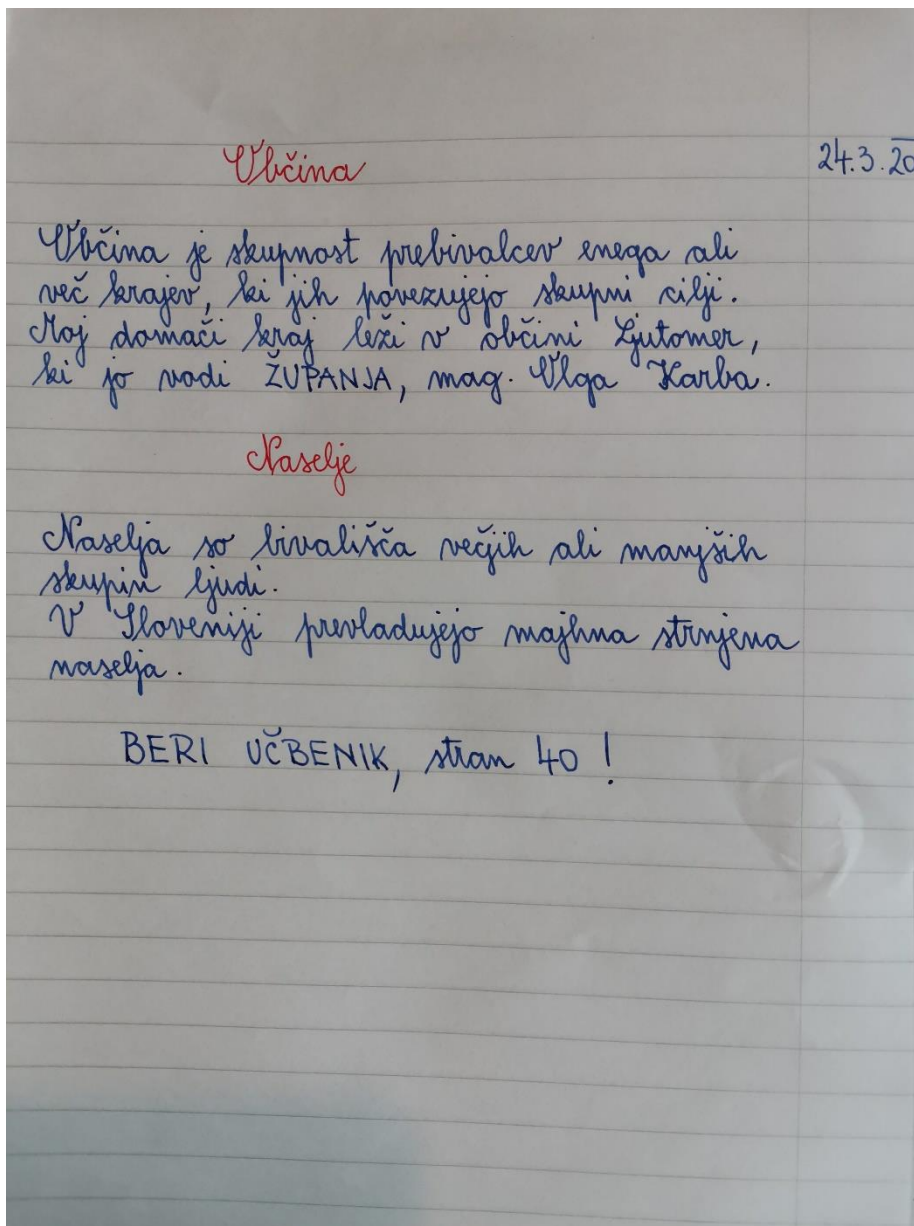 Občina
24.3.20
Občina je skupnost prebivalcev enega ali
več krajev, ki jih povezujejo skupni cilji.
Moj domači kraj leži v občini Ljutomer,
ki jo vodi ŽUPANJA, mag. Olga Karba.
Naselje
Naselja so bivališča večjih ali manjših
skupin ljudi.
V Sloveniji prevladujejo majhna strnjena
naselja.
BERI UČBENIK, stran 40!